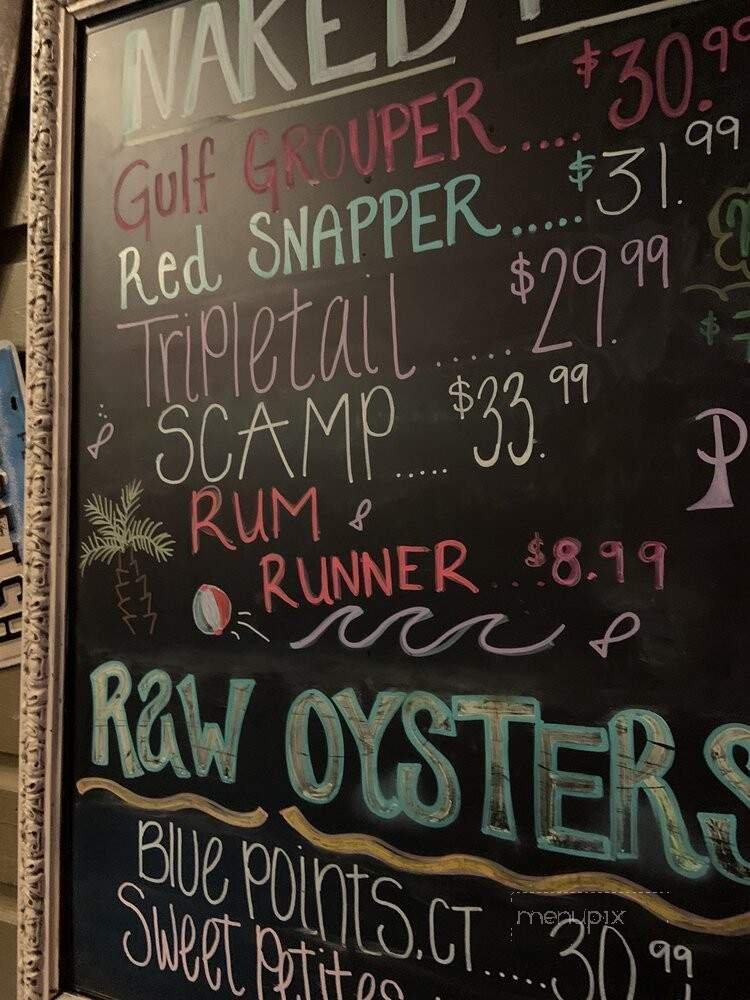 NAKED
Gulf GROUPER .... $30.99
Red SNAPPER ..... $31.99
Tripletail ...... $29.99
SCAMP ..... $33.99
RUM
RUNNER ... $8.99
Raw OYSTERS
Blue Points. CT ..... 30.99
Sweet Petites
menupix